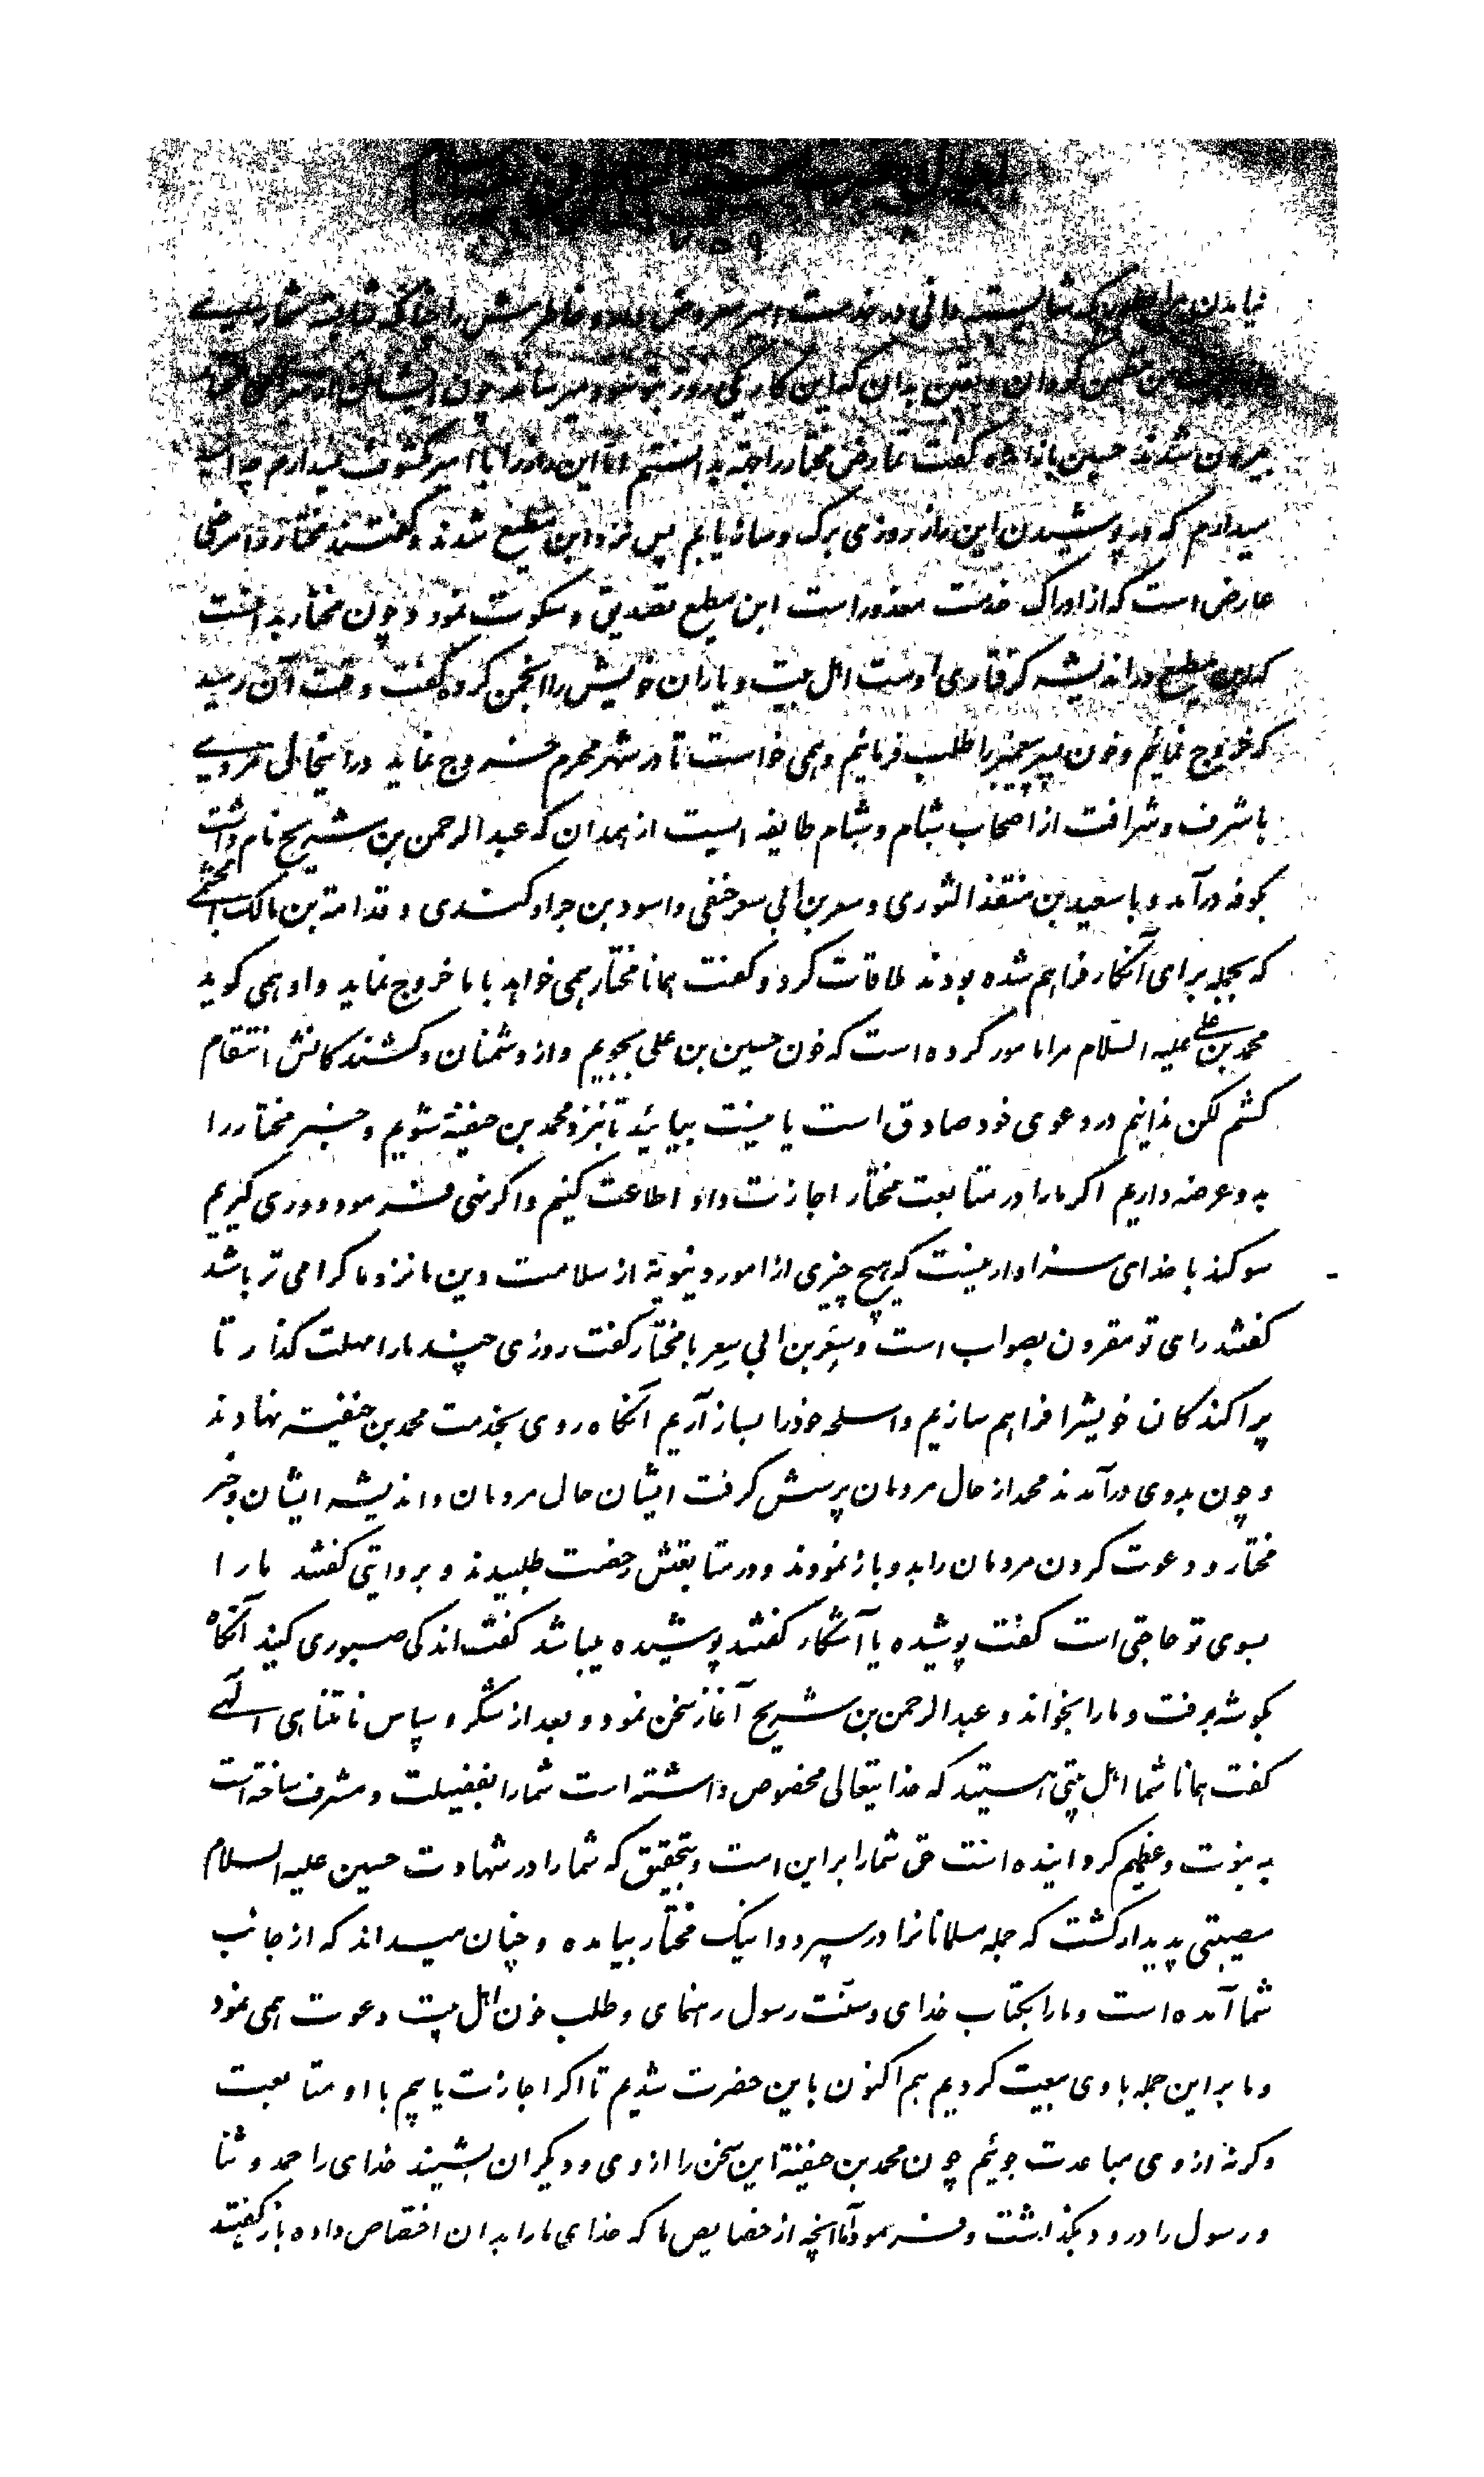 نیامدن مرا بطوریکه شایسته دانی در خدمت امیر معروض دار و خاطرمش را چنانکه
من مطمئن گردان و یقین بدان که این کار یکی روز بتو سود میرساند چون ایشان از
بیرون شدند حسین بازایده گفت تمارض مختار را بدانستم اما این راز را با امیر مکشوف نمیدارم چه امید
میدارم که در پوشیدن این راز روزی برگ و ساز یابم پس نزد ابن مطیع شدند و گفتند مختار را مرضی
عارض است که از ادراک خدمت معذور است ابن مطیع تصدیق و سکوت نمود و چون مختار بدانست
که ابن مطیع در اندیشه گرفتاری اوست اهل بیت و یاران خویش را انجمن کرده گفت وقت آن رسید
که خروج نمائیم و خون پسر پیغمبر را طلب فرمائیم و همی خواست تا در شهر محرم خروج نماید در اینحال مردی
با شرف و شرافت از اصحاب شبام و شبام طایفه ایست از همدان که عبدالرحمن بن شریح نام داشت
بکوفه درآمد و با سعید بن منقذ الثوری و سعر بن ابی سعر حنفی و اسود بن جراد کندی و قدامة بن مالک الجشمی
که بجمله برای آنکار فراهم شده بودند ملاقات کرد و گفت همانا مختار همی خواهد با ما خروج نماید و او همی گوید
محمد بن علی علیه السلام مرا مامور کرده است که خون حسین بن علی بجویم و از دشمنان و کشندگانش انتقام
کشم لکن ندانیم در دعوی خود صادق است یا نیست بیائید تا بنزد محمد بن حنفیة شویم و خبر مختار را
بدو عرضه داریم اگر ما را در متابعت مختار اجازت داد اطاعت کنیم و اگر نهی فرمود دوری گیریم
سوگند با خدای سزاوار نیست که هیچ چیزی از امور دنیویة از سلامت دین ما نزد ما گرامی تر باشد
گفتند رای تو مقرون بصواب است و سعر بن ابی سعر با مختار گفت روزی چند ما را مهلت گذار تا
پراکندگان خویش را فراهم سازیم و اسلحه خود را بساز آریم آنگاه روی بخدمت محمد بن حنفیه نهادند
و چون بدوی درآمدند محمد از حال مردمان پرسش گرفت ایشان حال مردمان و اندیشه ایشان و خبر
مختار و دعوت کردن مردمان را بدو باز نمودند و در متابعتش رخصت طلبیدند و بروایتی گفتند ما را
بسوی تو حاجتی است گفت پوشیده یا آشکار گفتند پوشیده میباشد گفت اندکی صبوری کنید آنگاه
بگوشه برفت و ما را بخواند و عبدالرحمن بن شریح آغاز سخن نمود و بعد از شکر و سپاس نامتناهی الهی
گفت همانا شما اهل بیتی هستید که خدایتعالی مخصوص داشته است شما را بفضیلت و مشرف ساخته است
به نبوت و عظیم گردانیده است حق شما را بر این امت و بتحقیق که شما را در شهادت حسین علیه السلام
مصیبتی پدیدار گشت که جمله مسلمانانرا در سپرد و اینک مختار بیامده و چنان میداند که از جانب
شما آمده است و ما را بکتاب خدای و سنت رسول رهنمای و طلب خون اهل بیت دعوت همی نمود
و ما بر این جمله با وی بیعت کردیم هم اکنون باین حضرت شدیم تا اگر اجازت یابیم با او متابعت
وگرنه از وی مباعدت جوئیم چون محمد بن حنفیة این سخن را از وی و دیگران بشنید خدای را حمد و ثنا
و رسول را درود بگذاشت و فرمود اما آنچه از خصایص ما که خدای ما را بدان اختصاص داده باز گفتید